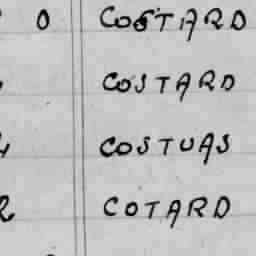 0 COSTARD
COSTARD
COSTUAS
2 COTARD